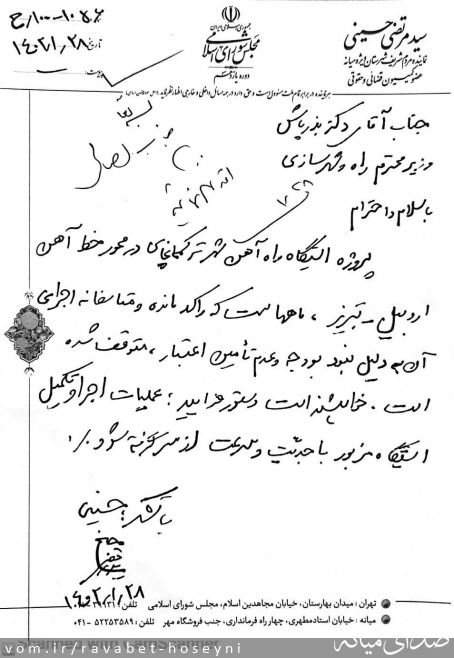 جمهوری اسلامی ایران
مجلس شورای اسلامی
دوره یازدهم
سید مرتضی حسینی
نماینده مردم شریف شهرستان ویژه میانه
عضو کمیسیون قضائی و حقوقی
تاریخ ۱۴۰۲/۱/۲۸
هر نماینده در برابر تمام ملت مسئول است و حق دارد در همه مسائل داخلی و خارجی اظهار نظر نماید
جناب آقای دکتر بذرپاش
وزیر محترم راه و شهرسازی
با سلام و احترام
پروژه ایستگاه راه آهن شهر ترکمانچای در محور خط آهن
اردبیل - تبریز ، ماههاست که راکد مانده و متاسفانه اجرای
آن به دلیل نبود بودجه و عدم تأمین اعتبار ، متوقف شده
است . خواهشمند است دستور فرمایید ؛ عملیات اجرا و تکمیل
ایستگاه مزبور با جدیت و سرعت از سر گرفته شود ./
با تشکر ؛ حسینی
۱۴۰۲/۱/۲۸
تهران : میدان بهارستان، خیابان مجاهدین اسلام، مجلس شورای اسلامی تلفن :
میانه : خیابان استاد مطهری، چهار راه فرمانداری، جنب فروشگاه مهر تلفن : ۵۲۲۵۳۵۸۹ - ۰۴۱
Scanned with CamScanner
صدای میانه
vom.ir/ravabet-hoseyni